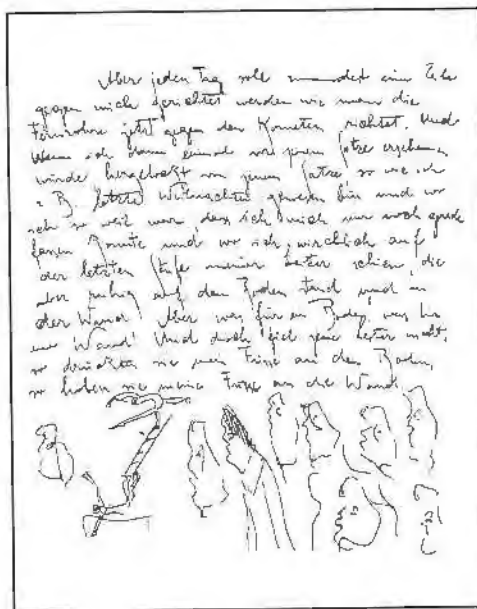 Aber jeden Tag soll zumindest eine Zeile
gegen mich gerichtet werden wie man die
Fernrohre jetzt gegen den Kometen richtet. Und
wenn ich dann einmal vor jenem Satze erscheinen
würde hergelockt von jenem Satze so wie ich
z. B. letzte Weihnachten gewesen bin und wo
ich so weit war, dass ich mich nur noch gerade
fassen konnte und wo ich wirklich auf
der letzten Stufe meiner Leiter schien, die
aber ruhig auf dem Boden stand und an
der Wand. Aber was für ein Boden, was für
eine Wand! Und doch fiel jene Leiter nicht,
so drückten sie meine Füsse an den Boden,
so hoben sie meine Füsse an die Wand.